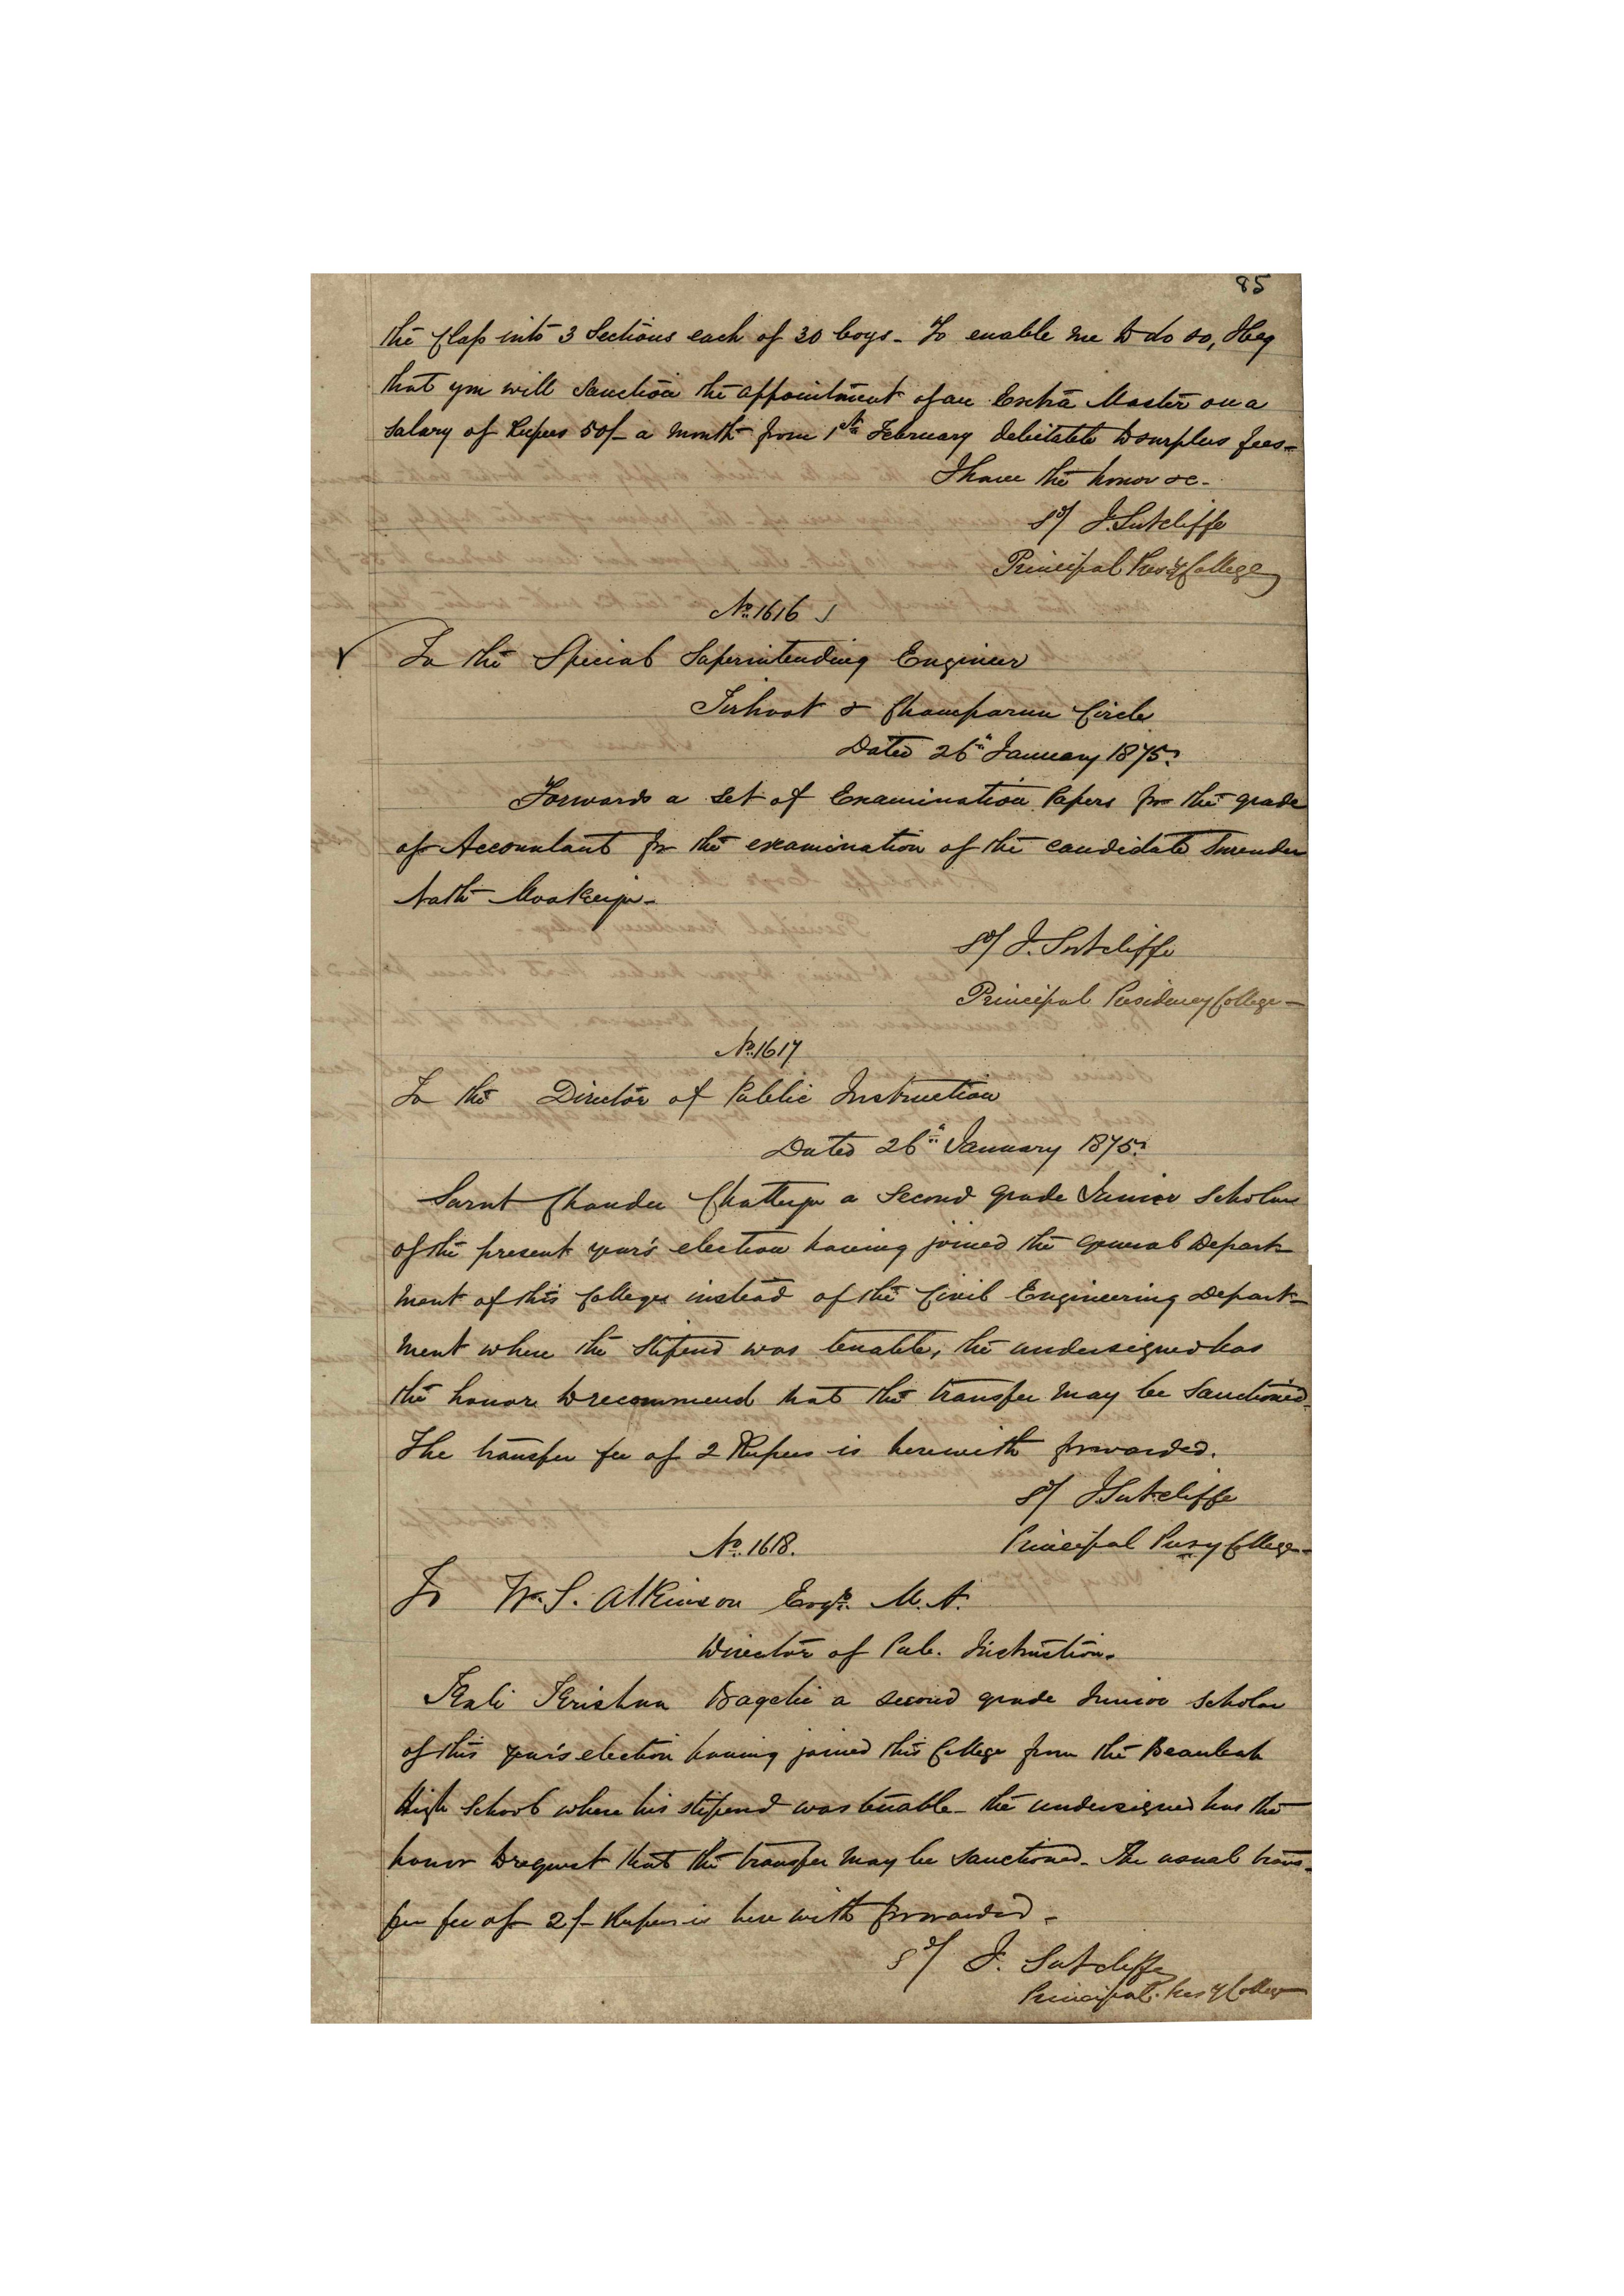 85
the Class into 3 Sections each of 30 boys - To enable me to do so, I beg
that you will sanction the appointment of an Extra Master on a
salary of Rupees 50/- a month from 1st February debitable to surplus fees -
I have the honor &c -
Sd/ J. Sutcliffe
Principal Presy College
No. 1616
To the Special Superintending Engineer
Tirhoot & Chumparun Circle
Dated 26th January 1875.
Forwards a set of Examination Papers for the grade
of Accountant for the examination of the candidate Surender
Nath Mookerjee -
Sd/ J. Sutcliffe
Principal Presidency College -
No. 1617
To the Director of Public Instruction
Dated 26th January 1875.
Sarut Chunder Chatterjee a Second grade Junior Scholar
of the present year's election having joined the General Depart-
ment of this College instead of the Civil Engineering Depart-
ment where the Stipend was tenable, the undersigned has
the honor to recommend that the transfer may be Sanctioned.
The transfer fee of 2 Rupees is herewith forwarded.
Sd/ J Sutcliffe
Principal Presy College -
No. 1618.
To W. S. Atkinson Esqre. M. A.
Director of Pub. Instruction.
Kali Krishna Bagchi a second grade Junior Scholar
of this year's election having joined this College from the Beauleah
High School where his stipend was tenable - the undersigned has the
honor to request that the transfer may be sanctioned - The usual trans-
fer fee of 2/- Rupees is here with forwarded -
Sd/ J. Sutcliffe
Principal. Presy College